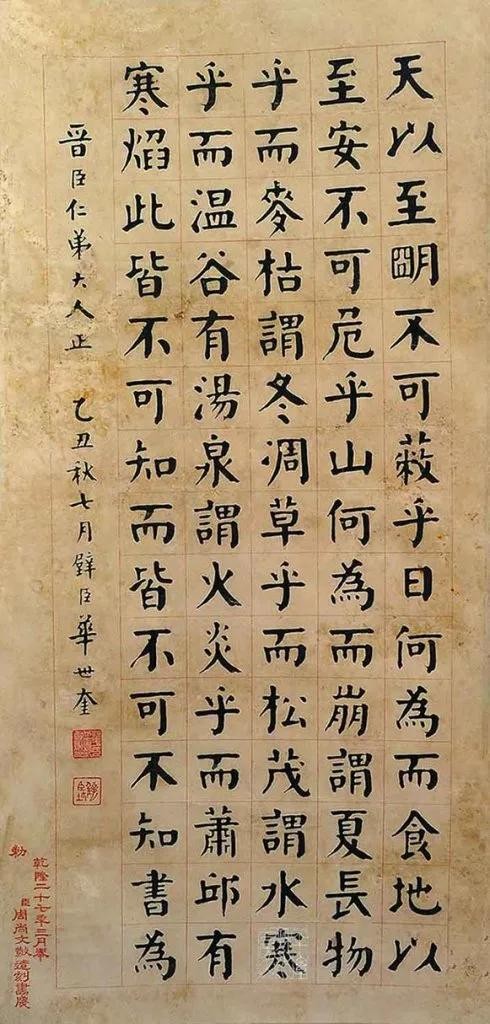 天以至朙不可蔽乎日何為而食地以
至安不可危乎山何為而崩謂夏長物
乎而麥枯謂冬凋草乎而松茂謂水寒
乎而温谷有湯泉謂火炎乎而蕭邱有
寒焰此皆不可知而皆不可不知書為
晉臣仁弟大人正 乙丑秋七月璧臣華世奎
乾隆二十七年三月奉
勅
臣周尚文敬